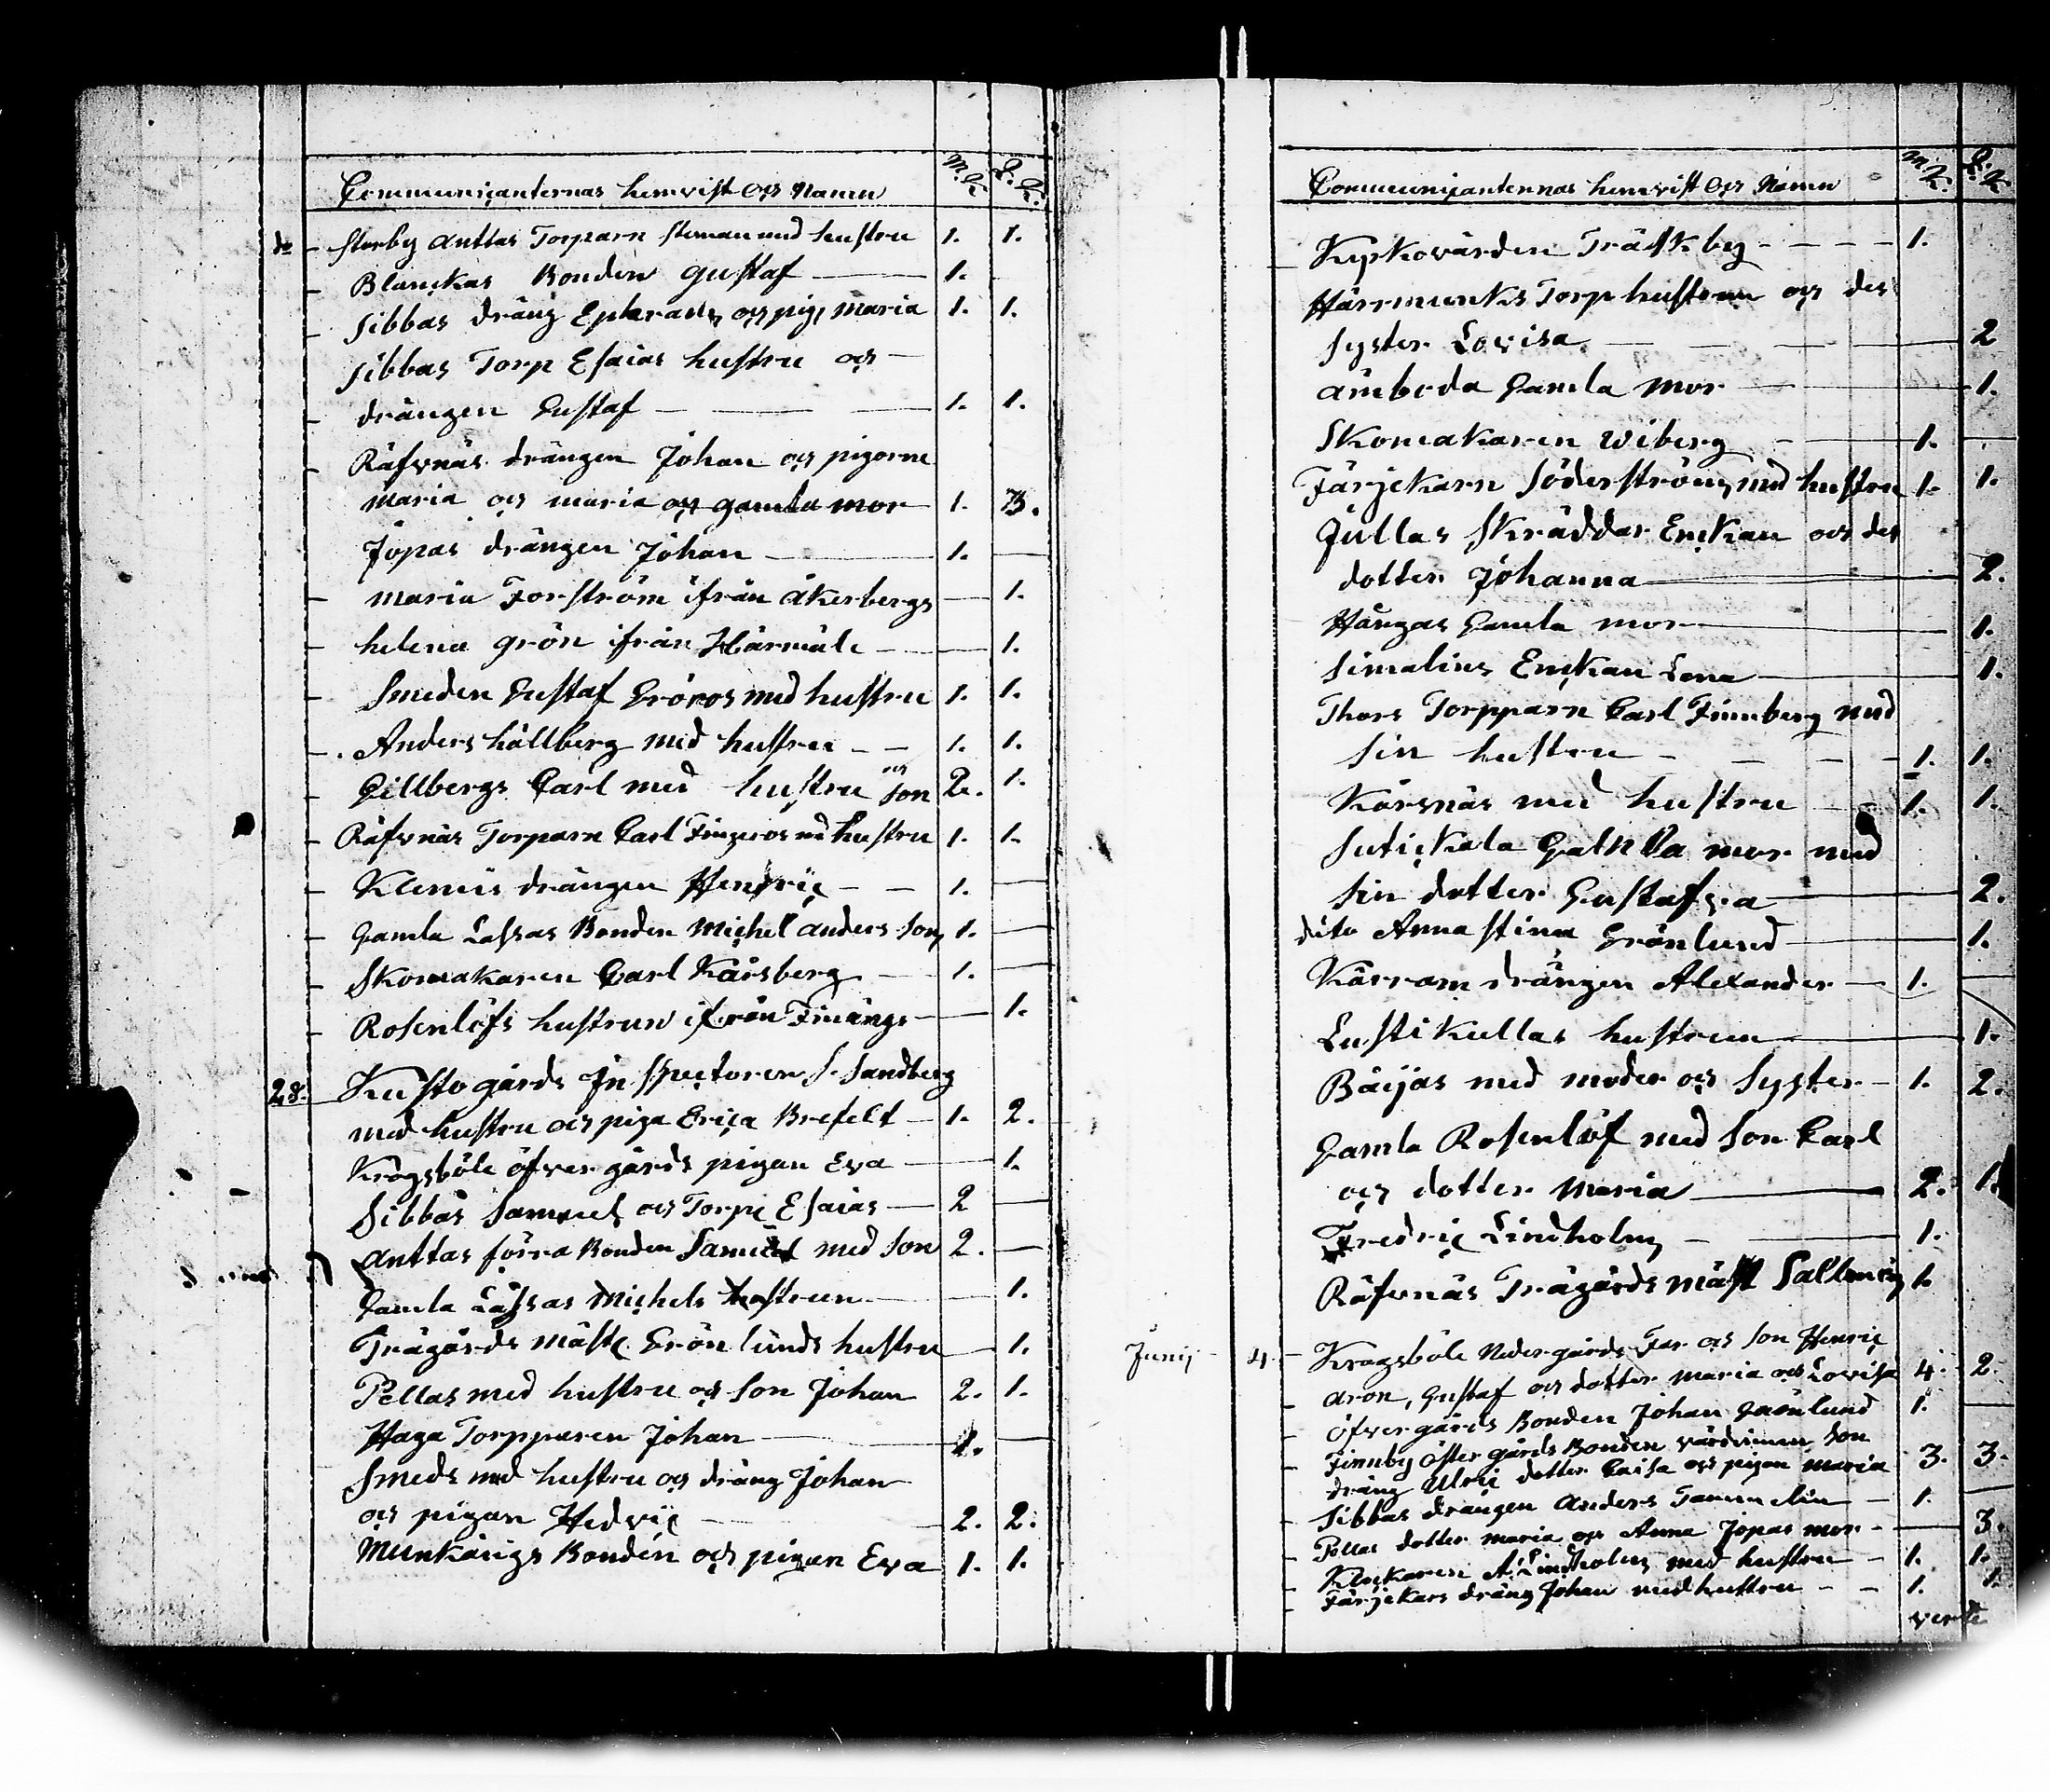 Communicanternas hemvist och Namn M.K. Q.K.
do Storby Anttas Torparn Steman med hustru 1. 1.
Blanckas Bonden Gustaf 1.
Sibbas dräng Ephraim och pig. Maria 1. 1.
Sibbas Torp Esaias hustru och
drängen Gustaf 1. 1.
Räfsnäs drängen Johan och pigorne
Maria och Maria och gamla mor 1. 3.
Jopas drängen Johan 1.
Maria Forström ifrån Åkerbergs 1.
helena Grön ifrån 1.
Smeden Gustaf Grönros med hustru 1. 1.
Anders hällberg med hustru 1. 1.
Gillbergs Carl med hustru och son 2. 1.
Räfsnäs Torparn Carl Fingeros md hustru 1. 1.
Klemis drängen Henric 1.
Gamla Lassas Bonden Michel Anders son 1.
Skomakaren Carl Kärsberg 1.
Rosenlöfs hustrun ifrån Finängs 1.
28. Kusto gårds Inspectoren S. Sandberg
med hustru och piga Erica Brefelt 1. 2.
Krogsböle öfver gårds pigan Eva 1.
Sibbas Samuel och Torp. Esaias 2
Anttas förra Bonden Samuel med Son 2.
Gamla Lassas Michels hustrun 1.
Trägårds mäst. Grönlunds hustru 1.
Pellas med hustru och son Johan 2. 1.
Haga Torpparen Johan 1.
Smeds med hustru och dräng Johan
och pigan Hedvig 2. 2.
Munkängs Bonden och pigan Eva 1. 1.
Communicanternas hemvist och Namn M.K. Q.K.
Kyrkovärden Träskby 1.
Härmunks Torp hustrun och des
Syster Lovisa 2
Åmboda Gamla Mor 1.
Skomakaren Wiberg 1.
Färjekarn Söderström med hustru 1. 1.
Jullas Skräddar Enckan och des
dotter Johanna 2.
Hångas Gamla mor 1.
Simalins Enckan Lena 1.
Thors Torpparn Carl Finnberg med
Sin hustru 1. 1.
Kärsnäs med hustru 1. 1.
Gamla mor med
Sin dotter Gustafva 2.
dito Anna Stina Grönlund 1.
Kärram drängen Alexander 1.
Lustikullas hustrun 1.
Bäijas med moder och Syster 1. 2.
Gamla Rosenlöf med Son Carl
och dotter Maria 2. 1.
Fredric Lindholm 1.
Räfsnäs Trägårds mäst 1.
Junij 4. Krogsböle Nedergårds Far och Son Henric
Aron, Gustaf och dotter Maria och Lovisa 4. 2.
Öfver gårds Bonden Johan Grönlund 1.
Finnby Öfter gårds Bonden värdinnan Son
dräng Ulric dotter Caisa och pigan Maria 3. 3.
Sibbas drängen Anders Tammelin 1.
Pellas dotter Maria och Anna Jopas mor 3.
Klockaren A. Lindholm med hustru 1. 1.
Färjekars dräng Johan med hustru 1. 1.
verte